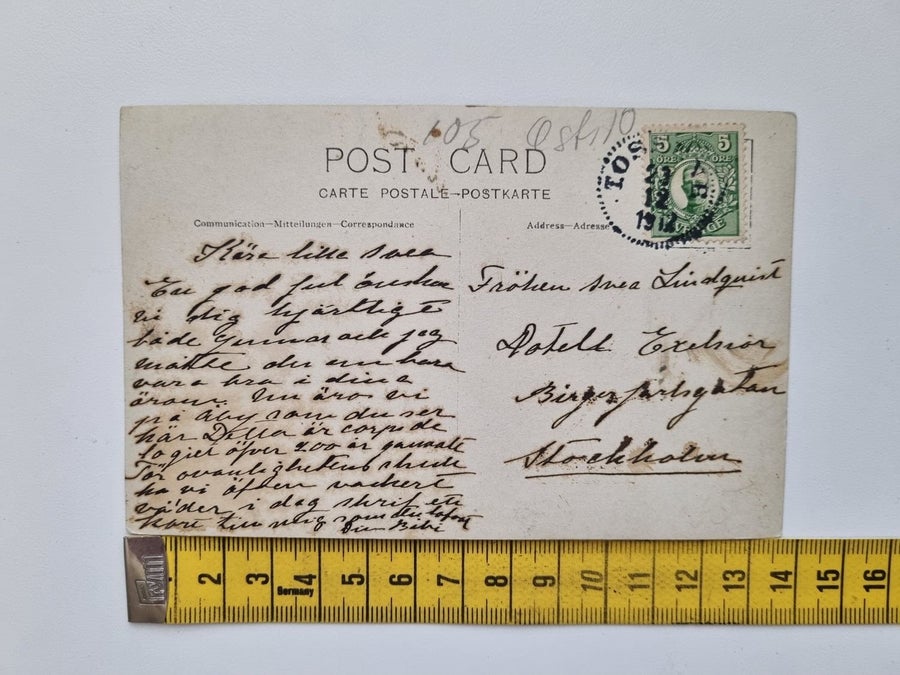 105 Öst. 10
POST CARD
CARTE POSTALE—POSTKARTE
Communication—Mitteilungen—Correspondance
Address—Adresse
5 5
ÖRE ÖRE
SVERIGE
TOS
23
12
1912
Kära lilla Svea
En god jul önskar
vi dig hjärtligt
både Gunnar och jag
måtte du nu bara
vara bra i dina
öron. Nu äro vi
på Åby som du ser
här Detta är corps de
logiet öfver 200 år gammalt
För ovanlighetens skull
ha vi äfven vackert
väder i dag skrif ett
kort till mig som du lofvat
Din Bibi
Fröken Svea Lindquist
Hotell Excelsior
Birger Jarlsgatan
Stockholm
Germany
2 3 4 5 6 7 8 9 10 11 12 13 14 15 16